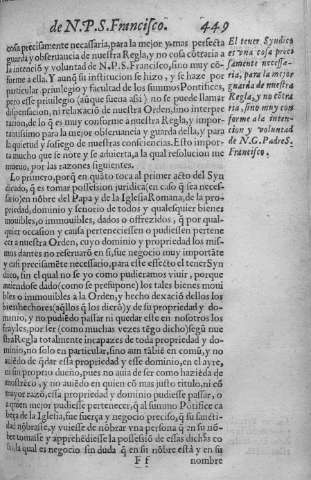 de N.P.S. Francisco. 449
cosa precisamente necessaria, para la mejor y mas perfecta
guarda y obseruancia de nuestra Regla, y no cosa cõtraria a
la intenciõ y voluntad de N.P.S. Francisco, sino muy cõ-
forme a ella. Y aunq̃ su institucion se hizo, y se haze por
particular priuilegio y facultad de los summos Pontifices,
pero esse priuilegio (aũque suena assi) no se puede llamar
dispensacion, ni relaxaciõ de nuestra Orden, sino interpre
tacion, de lo q̃ es muy conforme a nuestra Regla, y impor-
tantissimo para la mejor obseruancia y guarda della, y para
la quietud y sosiego de nuestras consciencias. Esto impor-
ta mucho que se note y se aduierta, a la qual resolucion me
mueuo, por las razones siguientes.
Lo primero, porq̃ en quãto toca al primer acto del Syn
dicado, q̃ es tomar possession juridica (en caso q̃ sea neces-
sario) en nõbre del Papa y de la Iglesia Romana, de la pro-
piedad, dominio y señorio de todos y qualesquier bienes
mouibles, o immouibles, dados o offrezidos, q̃ por qual-
quier occasion y causa perteneciessen o pudiessen pertene
cer a nuestra Orden, cuyo dominio y propriedad los mis-
mos dantes no reseruarõ en si, fue negocio muy importãte
y casi precisamẽte necessario, para este effecto el tener Syn
dico, sin el qual no se yo como pudieramos viuir, porque
auiendose dado (como se presupone) los tales bienes moui
bles o immouibles a la Orden, y hecho dexaciõ dellos los
bienhechores (aq̃llos q̃ los dierõ) y de su propriedad y do-
minio, y no pudiẽdo passar ni quedar este en nosotros los
frayles, por ser (como muchas vezes tẽgo dicho) segũ nue
stra Regla totalmente incapazes de toda propriedad y do-
minio, no solo en particular, sino aun tãbiẽ en comũ, y no
auiẽdo de q̃dar essa propriedad y esse dominio, en el ayre,
ni sin proprio dueño, pues no auia de ser como haziẽda de
mostrẽco, y no auiẽdo en quien cõ mas justo titulo, ni cõ
mayor razõ, essa propriedad y dominio pudiesse passar, o
a quien mejor pudiesse pertenecer, q̃ al summo Põtifice ca
beça de la Iglesia, fue fuerça y negocio preciso, q̃ la sancti-
dad nõbrasse, y vuiesse de nõbrar vna persona q̃ en su nõ-
bre tomasse y apprehẽdiesse la possessiõ de essas dichas co
sas, la qual es negocio sin duda q̃ en su nõbre està y en su
F f nombre
El tener Syndico
es vna cosa preci
samente necessa-
ria, para la mejor
guarda de nuestra
Regla, y no cõtra
ria, sino muy con
forme a la inten-
cion y voluntad
de N.G. Padre S.
Francisco.